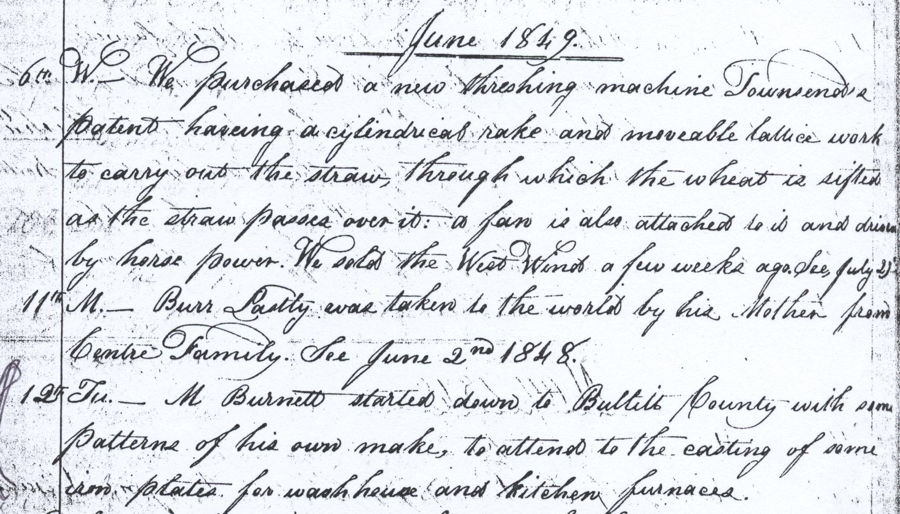 June 1849.
6th W.— We purchased a new threshing machine Townsend's
patent having a cylindrical rake and moveable lattice work
to carry out the straw, through which the wheat is sifted
as the straw passes over it: a fan is also attached to it and driven
by horse power. We sold the West Wind a few weeks ago. See, July
11th M.— Burr Lastly was taken to the world by his Mother from
Centre Family. See June 2nd 1848.
12th Tu.— M Burnett started down to Bullitt County with some
patterns of his own make, to attend to the casting of some
iron plates for washhouse and kitchen furnaces.